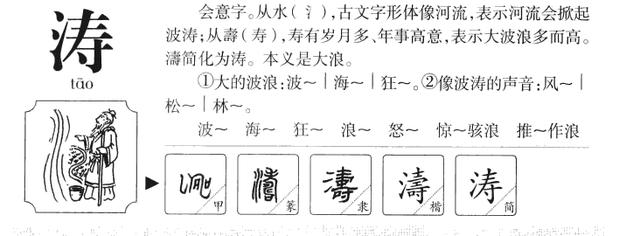 涛
tāo
会意字。从水(氵),古文字形体像河流,表示河流会掀起
波涛;从壽(寿),寿有岁月多、年事高意,表示大波浪多而高。
濤简化为涛。本义是大浪。
①大的波浪:波～｜海～｜狂～。②像波涛的声音:风～｜
松～｜林～。
波～ 海～ 狂～ 浪～ 怒～ 惊～骇浪 推～作浪
甲 濤 篆 濤 隶 濤 楷 涛 简